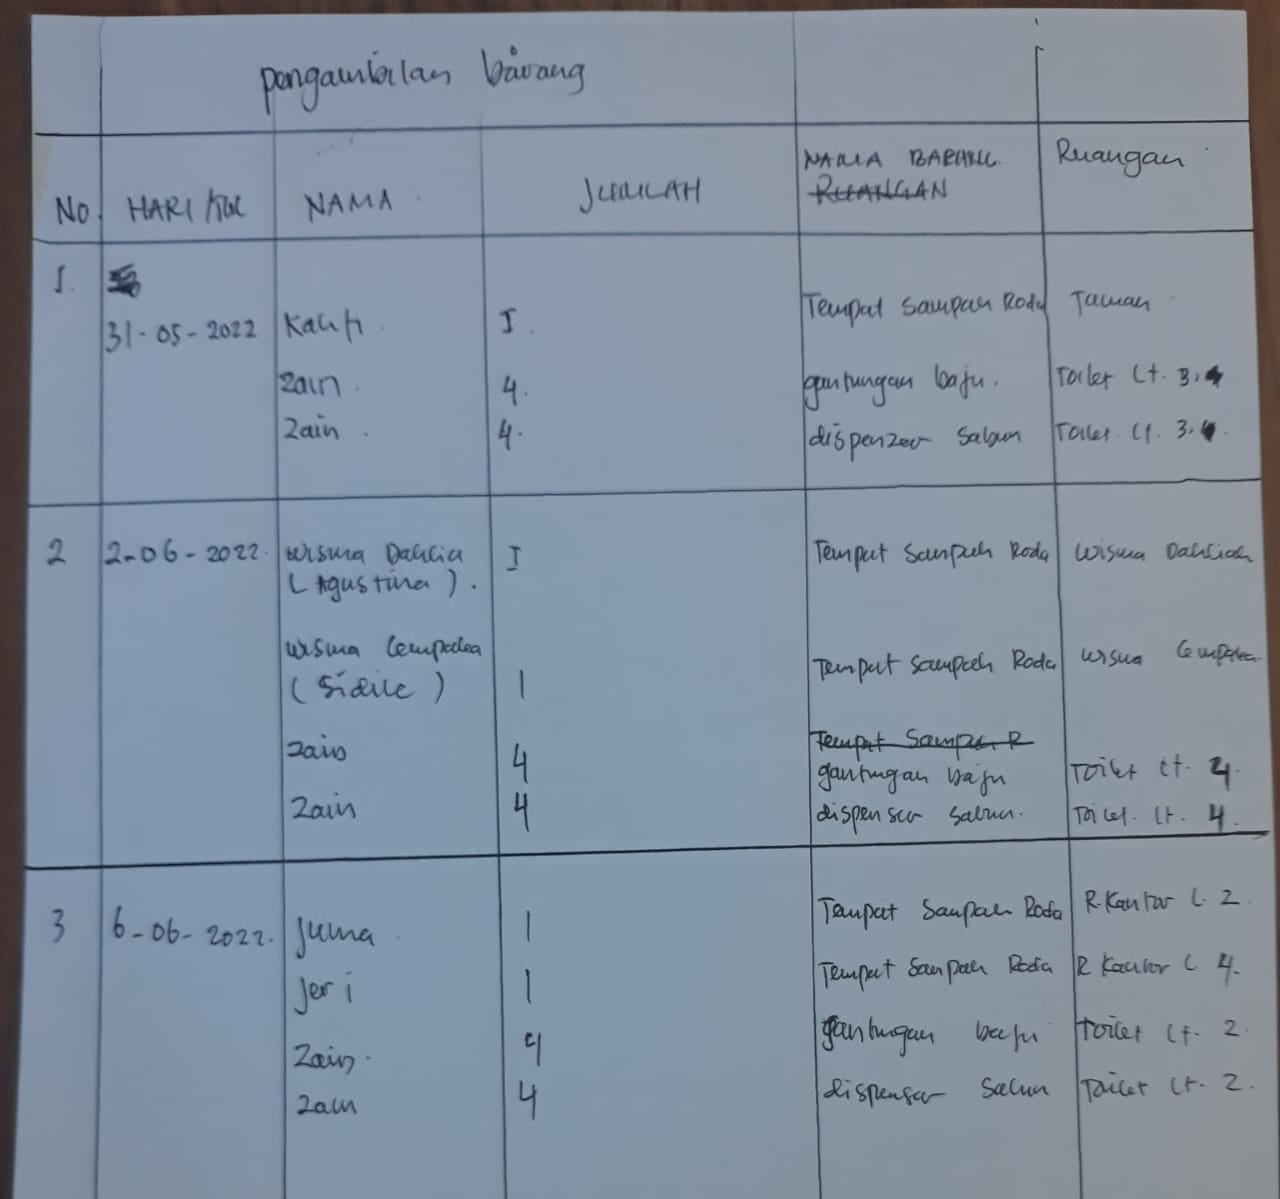 pengambilan barang
No. HARI/TGL NAMA JUMLAH NAMA BARANG Ruangan
RUANGAN
1.
31-05-2022 I. Tempat Sampah Roda Taman
Zain. 4. gantungan baju. Toilet Lt. 3.
Zain. 4. dispenzer Sabun Toilet Lt. 3.
2 2-06-2022. Wisma Dahlia I Tempat Sampah Roda Wisma Dahliah
(Agustina).
Wisma Cempaka Tempat Sampah Roda Wisma Cempaka
1
Tempat Sampa R
Zain 4 gantungan baju Toilet Lt. 4.
Zain 4 dispenser Sabun. Toilet. Lt. 4.
3 6-06-2022. Juma 1 Tempat Sampah Roda R.Kantor L. 2.
Jeri 1 Tempat Sampah Roda R Kantor L 4.
Zain. 4 gantungan baju Toilet Lt. 2.
Zain 4 dispenser Sabun Toilet Lt. 2.